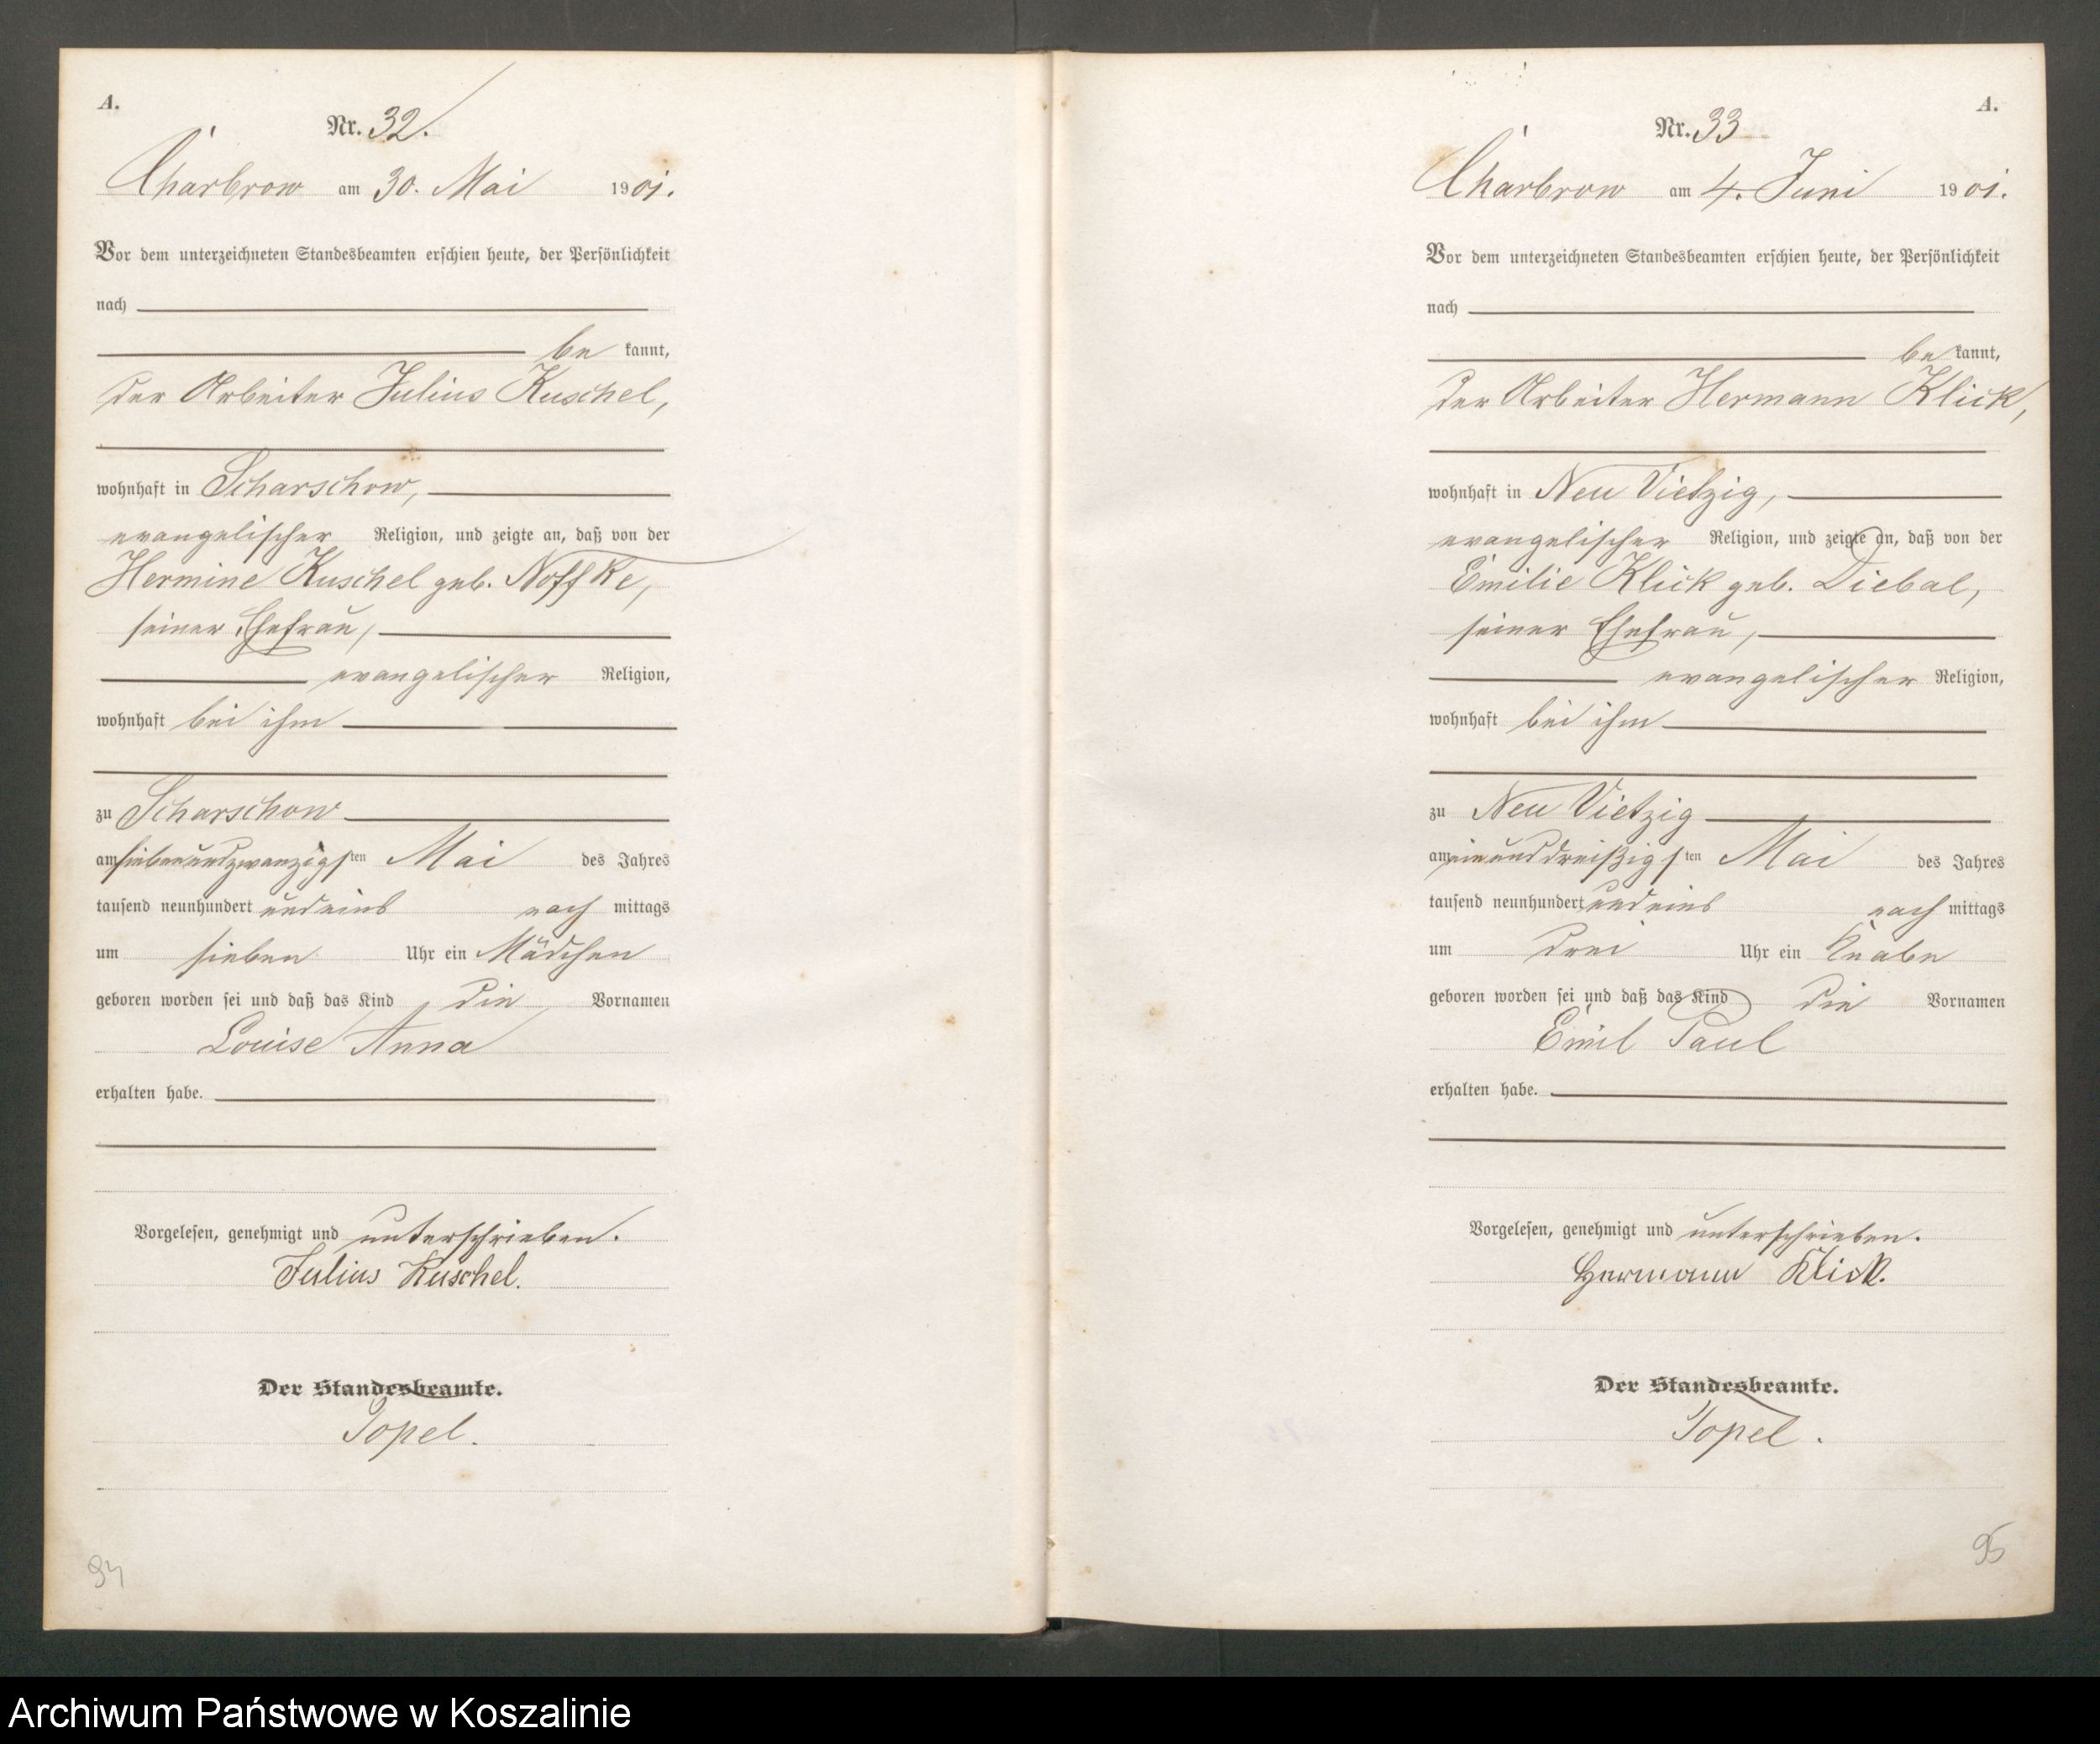 A.
Nr. 32.
Charbrow am 30. Mai 1901.
Vor dem unterzeichneten Standesbeamten erschien heute, der Persönlichkeit
nach
be kannt,
der Arbeiter Julius Kuschel,
wohnhaft in Scharschow,
evangelischer Religion, und zeigte an, daß von der
Hermine Kuschel geb. Noffke,
seiner Ehefrau,
evangelischer Religion,
wohnhaft bei ihm
zu Scharschow
am siebenundzwanzigsten Mai des Jahres
tausend neunhundert undeins nach mittags
um sieben Uhr ein Mädchen
geboren worden sei und daß das Kind die Vornamen
Louise Anna
erhalten habe.
Vorgelesen, genehmigt und unterschrieben.
Julius Kuschel.
Der Standesbeamte.
Topel.
94
A.
Nr. 33
Charbrow am 4. Juni 1901.
Vor dem unterzeichneten Standesbeamten erschien heute, der Persönlichkeit
nach
be kannt,
der Arbeiter Hermann Klick,
wohnhaft in Neu Vietzig,
evangelischer Religion, und zeigte an, daß von der
Emilie Klick geb. Diebal,
seiner Ehefrau,
evangelischer Religion,
wohnhaft bei ihm
zu Neu Vietzig
am einunddreißigsten Mai des Jahres
tausend neunhundert undeins nach mittags
um drei Uhr ein Knabe
geboren worden sei und daß das Kind die Vornamen
Emil Paul
erhalten habe.
Vorgelesen, genehmigt und unterschrieben.
Hermann Klick.
Der Standesbeamte.
Topel.
95
Archiwum Państwowe w Koszalinie